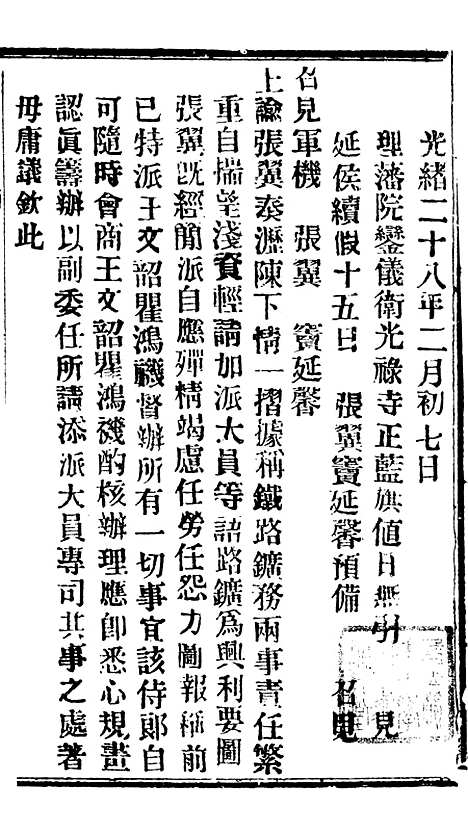 光緒二十八年二月初七日
理藩院鑾儀衛光祿寺正藍旗值日無引 見
延侯續假十五日 張翼竇延馨預備 召見
召見軍機 張翼 竇延馨
上諭張翼奏瀝陳下情一摺據稱鐵路鑛務兩事責任繁
重自揣望淺資輕請加派大員等語路鑛爲興利要圖
張翼旣經簡派自應殫精竭慮任勞任怨力圖報稱前
已特派王文韶瞿鴻禨督辦所有一切事宜該侍郞自
可隨時會商王文韶瞿鴻禨酌核辦理應卽悉心規畫
認眞籌辦以副委任所請添派大員專司其事之處著
毋庸議欽此